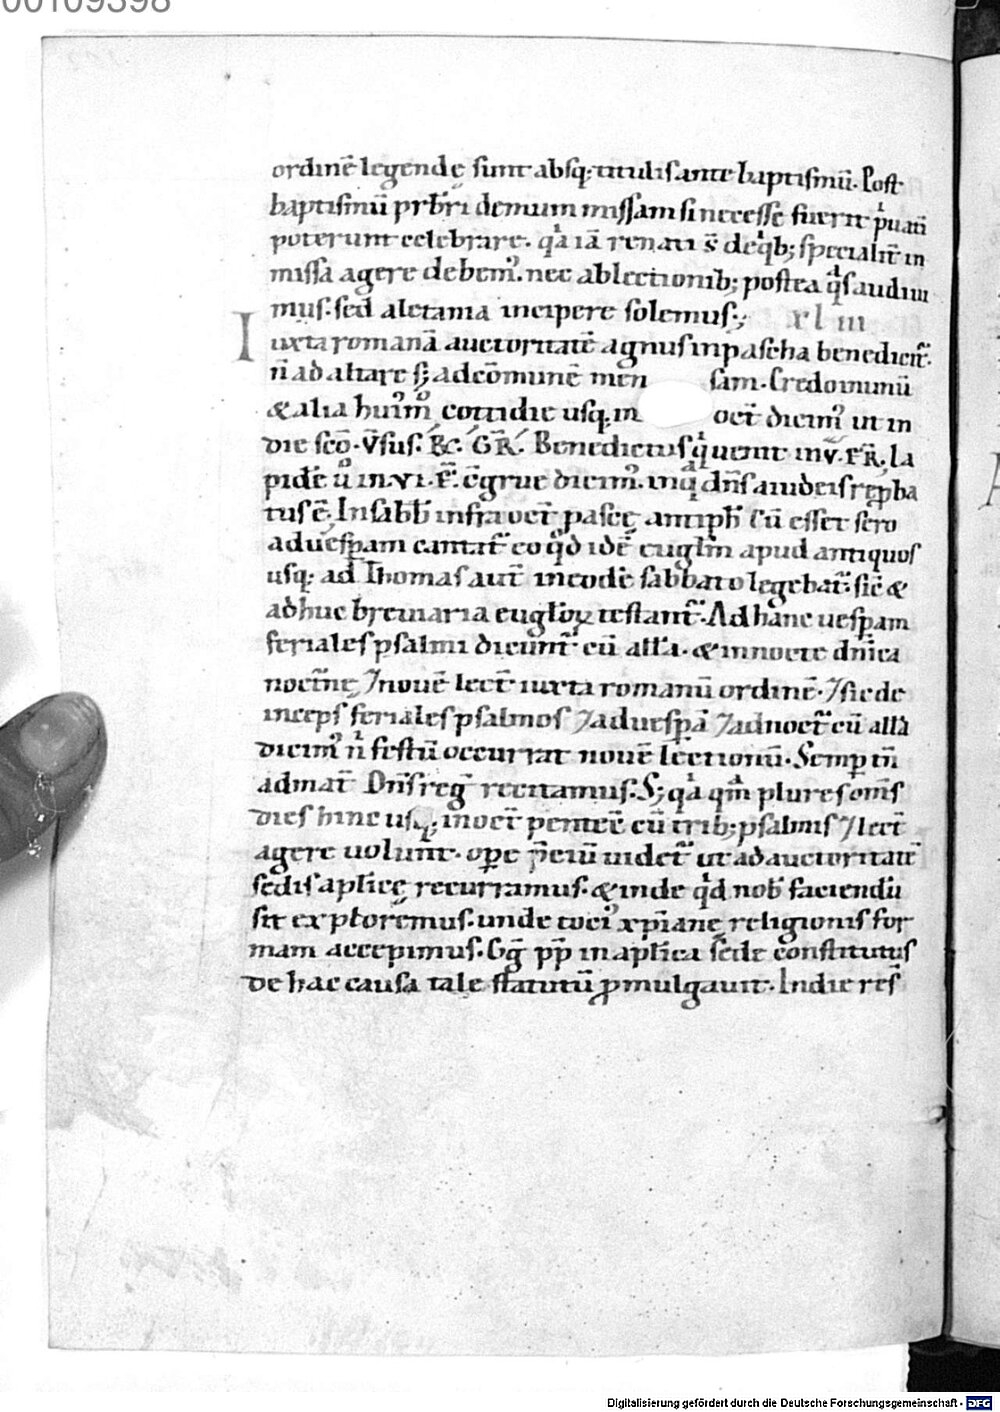 00109398
ordinē legendę sunt absq; titulis ante baptismū. Post
baptismū prb̄ri demum missam si necesse fuerit puatī
poterunt celebrare. qa iā renati s̄ de qb; specialit̄ in
missa agere debem᷒. nec ab lectionib; postea qs audiui
mus. sed a letania incipere solemus; xl iii
Iuxta romanā auctoritatē agnus in pascha benedicit̄.
n̄ ad altare s; ad cōmunē men sam. Credo in unū
& alia hui᷒m̄ cottidie usq; in oct̄ dicim᷒ ut in
die scō. V̄sus. R̄C. GR̄. Benedictus qui uenit in v̄. FR̄. la
pidē ū in VI. F̄. c̄grue dicim᷒. in q dn̄s a iudeis rep̱ba
tus ē. In sabb̄ infra oct̄ pascę antiph̄ Cū esset sero
ad uesp̱am cantat̄ eo qd idē euglīm apud antiquos
usq; ad Thomas aut̄ in eodē sabbato legebat̄. sic̄ &
adhuc breuiaria euglīoꝝ testant̄. Ad hanc uesp̱am
feriales psalmi dicunt̄ cū all̄a. & in nocte dn̄ica
noct̄nę ⁊ nouē lect̄ iuxta romanū ordinē. ⁊ sic de
inceps feriales psalmos ⁊ ad uesp̱ā ⁊ ad noct̄ cū all̄a
dicim᷒ n̄ festū occurrat nouē lectionū. Semp̱ tn̄
ad mat̄ Dn̄s reḡ recitamus. S; qa qm̄ plures om̄s
dies hinc usq; in oct̄ pentec̄ cū trib; psalmis ⁊ lect̄
agere uolunt. op̱e p̄ciū uidet̄ ut ad auctoritatē
sedis ap̄licę recurramus. & inde qd nob̄ faciendū
sit exploremus. unde toci᷒ xp̄ianę religionis for
mam accepimus. Gḡ pp̄ in ap̄lica sede constitutus
de hac causa tale statutū p̱mulgauit. In die res̄
Digitalisierung gefördert durch die Deutsche Forschungsgemeinschaft - DFG